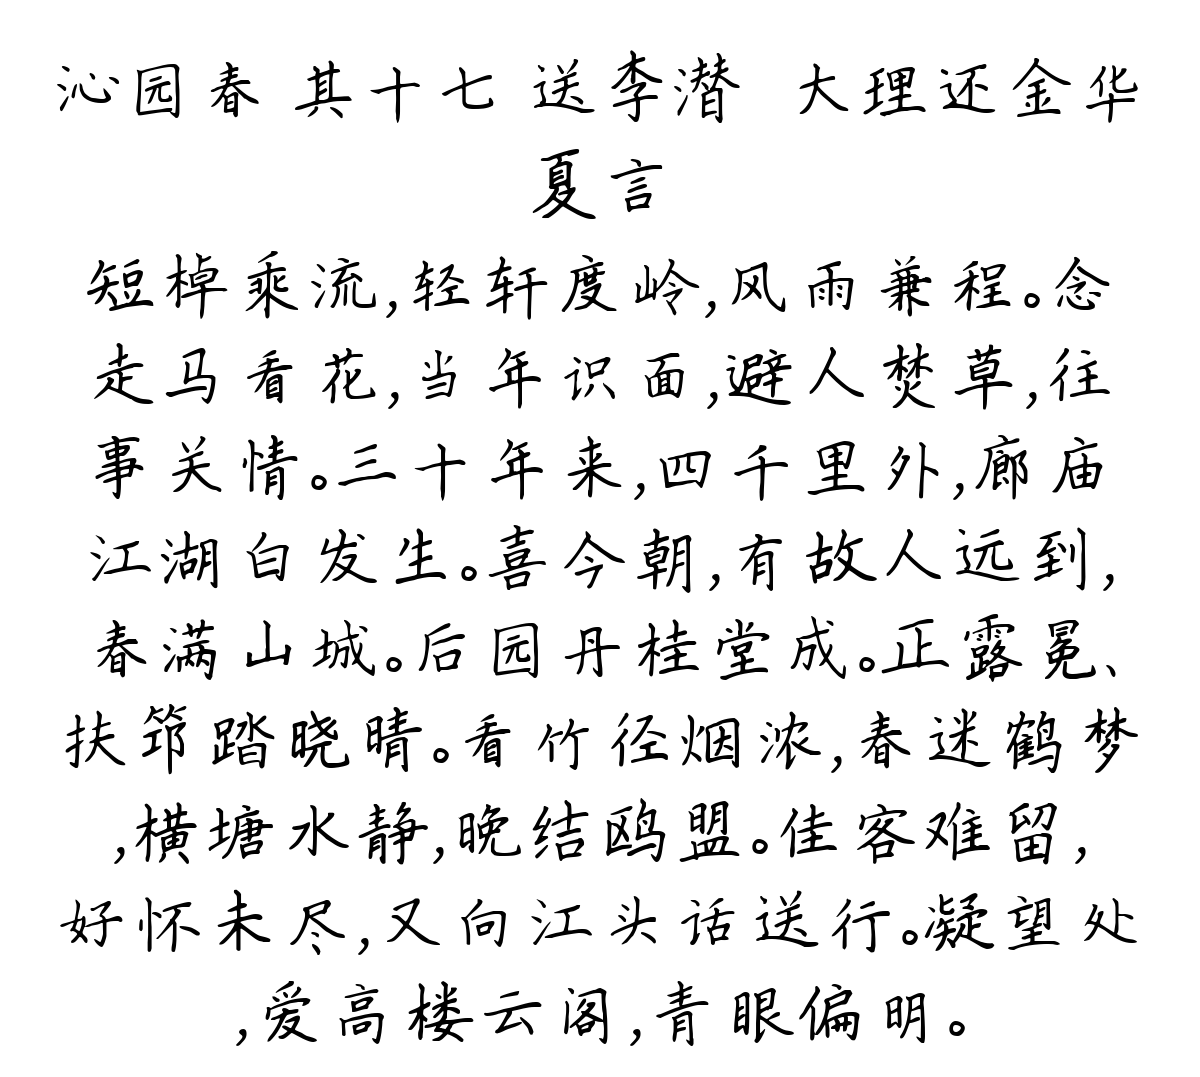 沁园春 其十七 送李潜 大理还金华
夏言
短棹乘流,轻轩度岭,风雨兼程。念
走马看花,当年识面,避人焚草,往
事关情。三十年来,四千里外,廊庙
江湖白发生。喜今朝,有故人远到,
春满山城。后园丹桂堂成。正露冕、
扶筇踏晓晴。看竹径烟浓,春迷鹤梦
,横塘水静,晚结鸥盟。佳客难留,
好怀未尽,又向江头话送行。凝望处
,爱高楼云阁,青眼偏明。